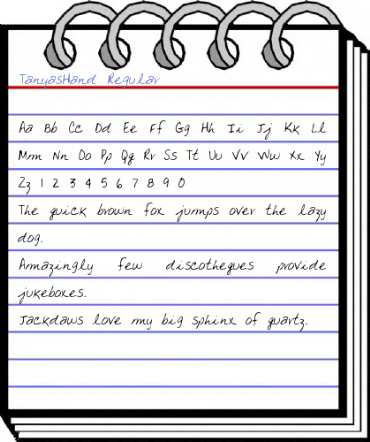 TanyasHand Regular
Aa Bb Cc Dd Ee Ff Gg Hh Ii Jj Kk Ll
Mm Nn Oo Pp Qq Rr Ss Tt Uu Vv Ww Xx Yy
Zz 1 2 3 4 5 6 7 8 9 0
The quick brown fox jumps over the lazy
dog.
Amazingly few discotheques provide
jukeboxes.
Jackdaws love my big sphinx of quartz.